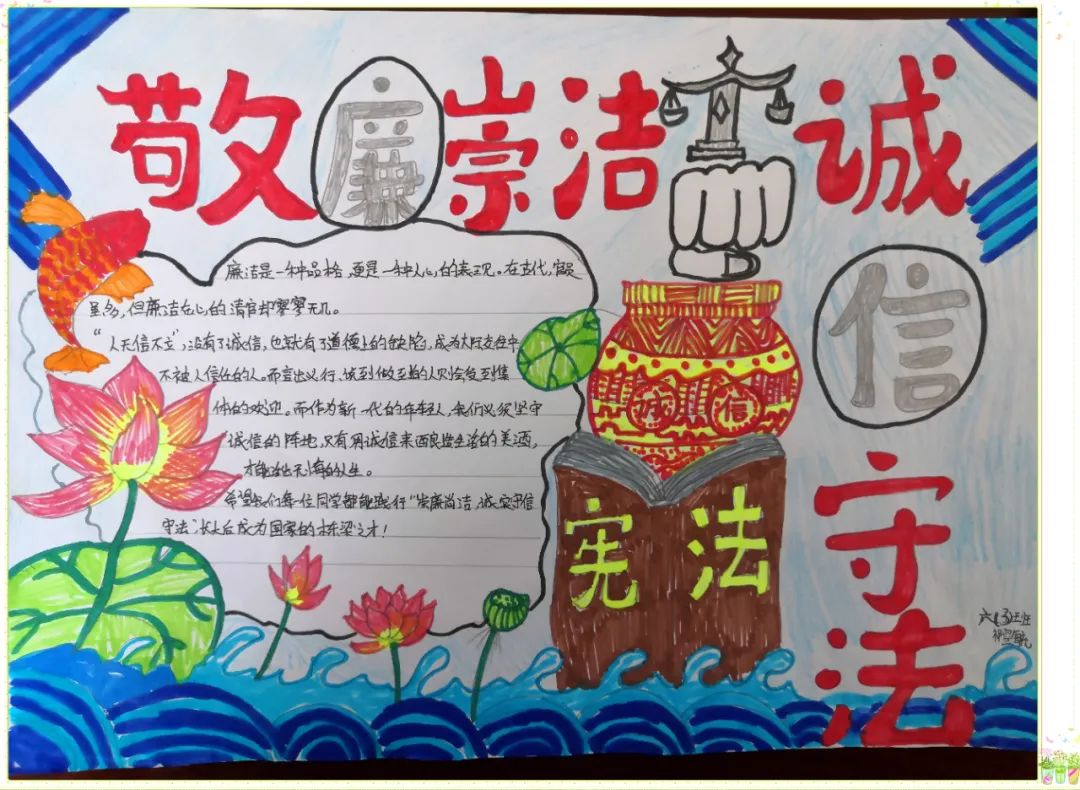 敬廉崇洁诚
信
守
法
诚信
宪法
廉洁是一种品格，更是一种人心的表现。在古代，官员
虽多，但廉洁在心的清官却寥寥无几。
“人无信不立”，没有了诚信，也就有了道德上的缺陷，成为大厅支柱中
不被人信任的人。而言出必行，说到做到的人则会受到集
体的欢迎。而作为新一代的年轻人，我们必须坚守
诚信的阵地，只有用诚信来酿造生活的美酒，
才能活出无悔的人生。
希望我们每一位同学都能践行“崇廉尚洁，诚实守信
守法”，长大后成为国家的栋梁之才！
六（3）班